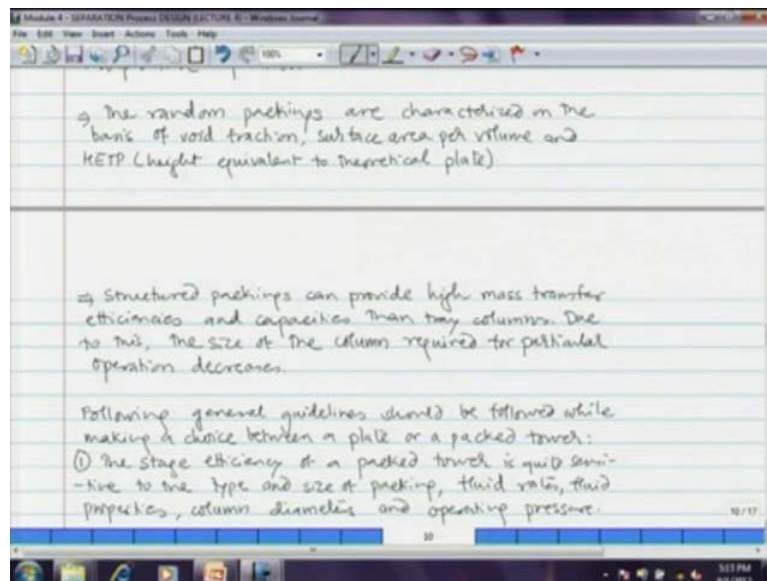 Module 4 - SEPARATION Process DESIGN (LECTURE 4) - Windows Journal
File Edit View Insert Actions Tools Help
100%
⇒ The random packings are characterized on the
basis of void fraction, surface area per volume and
HETP (height equivalent to theoretical plate)
⇒ Structured packings can provide high mass transfer
efficiencies and capacities than tray columns. Due
to this, the size of the column required for particular
operation decreases.
Following general guidelines should be followed while
making a choice between a plate or a packed tower:
① The stage efficiency of a packed tower is quit sensi-
-tive to the type and size of packing, fluid rates, fluid
properties, column diameters and operating pressure.
10/17
10
5:13 PM